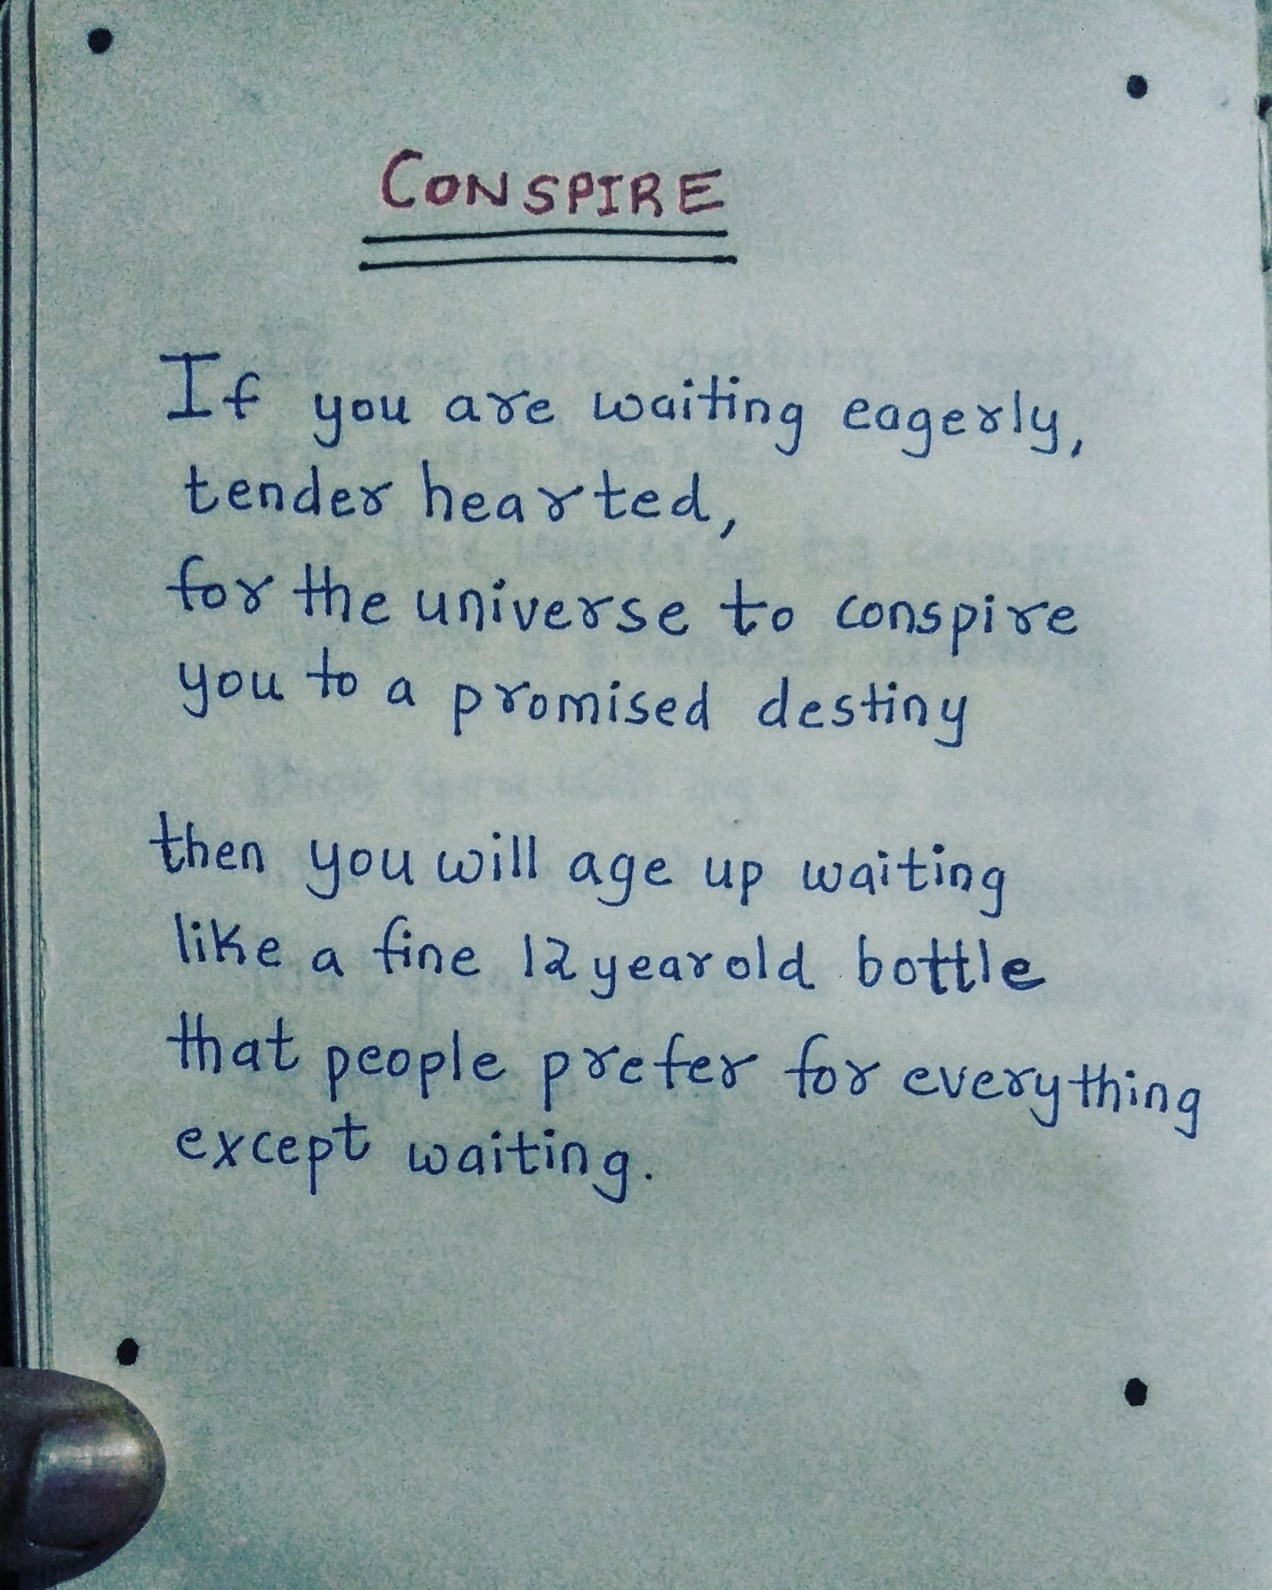 CONSPIRE
If you are waiting eagerly,
tender hearted,
for the universe to conspire
you to a promised destiny
then you will age up waiting
like a fine 12 year old bottle
that people prefer for everything
except waiting.